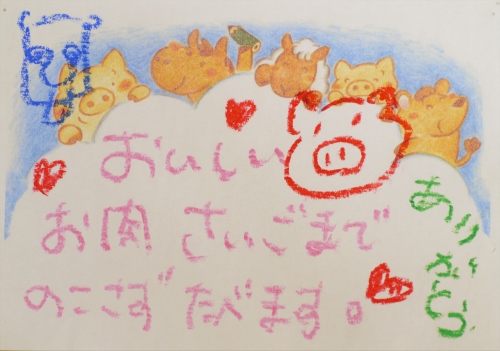 おいしい
お肉 さいごまで
のこさず たべます。
ありがとう